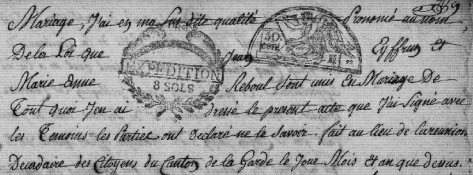 1869
Mariage, J'ai en ma Susdite qualité Prononcé au nom
De la Loi que Jean Eyffren et
Marie anne Reboul sont unis En Mariage De
Tout quoi J'en ai dressé le present acte que J'ai Signé avec
les Temoins les Parties ont Declaré ne le Savoir. fait au lieu de la reunion
Decadaire des Citoyens du Canton de la Garde le Jour Mois et an que dessus.
EXPEDITION
8 SOLS